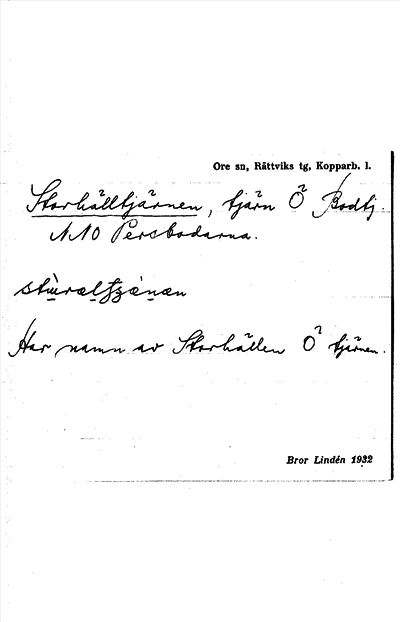 Ore sn, Rättviks tg, Kopparb. l.
Storhälltjärnen, tjärn Ö Bodtj.
NNO Persbodarna.
Har namn av Storhällen Ö tjärnen.
Bror Lindén 1932